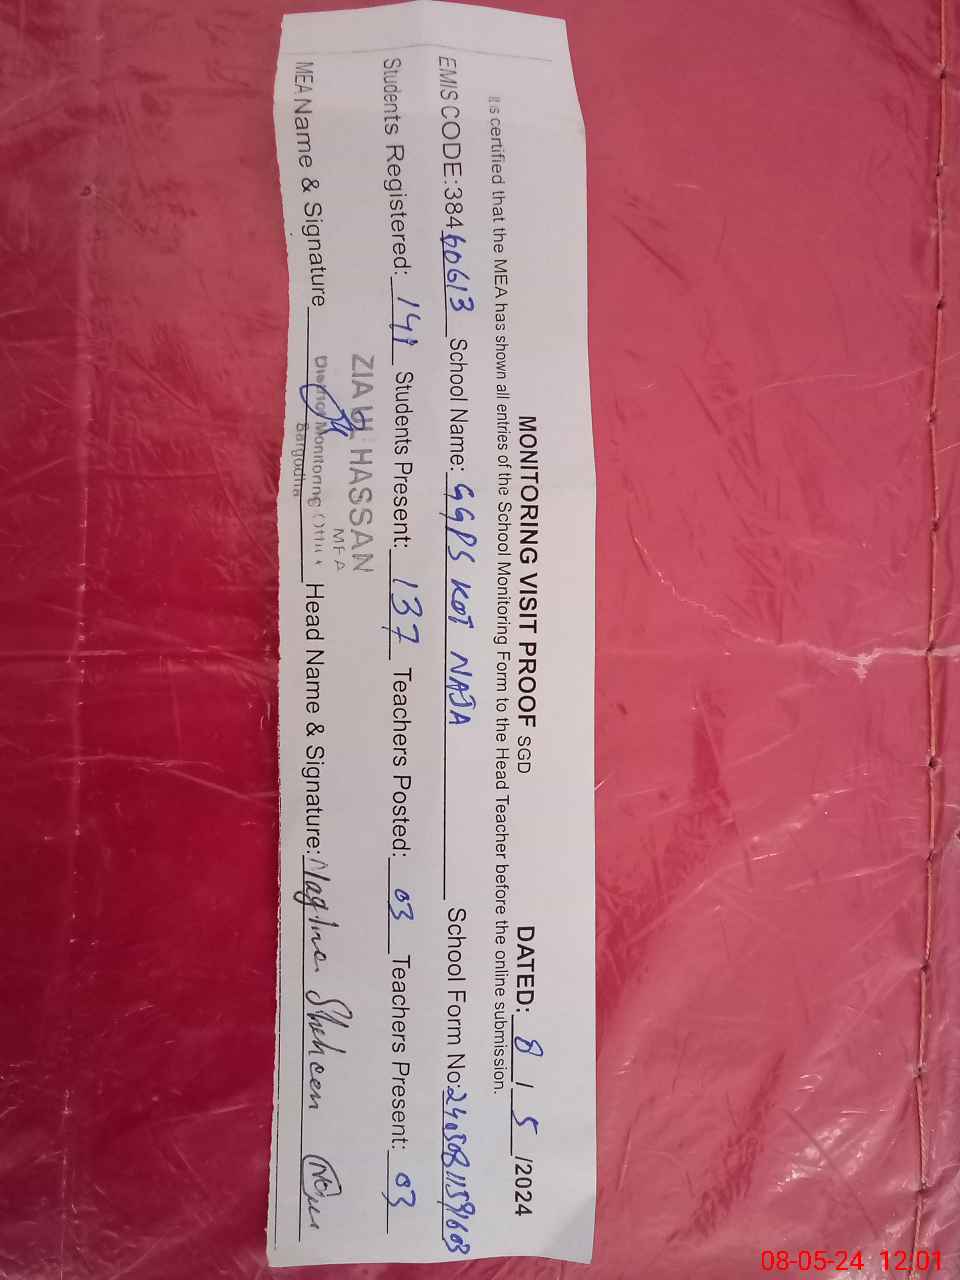 MONITORING VISIT PROOF SGD DATED: 8 / 5 /2024
It is certified that the MEA has shown all entries of the School Monitoring Form to the Head Teacher before the online submission.
EMIS CODE:38460613 School Name: GGPS KOT NAJA School Form No:
Students Registered: Students Present: 137 Teachers Posted: 03 Teachers Present: 03
ZIA UL HASSAN
MEA
District Monitoring Office
Sargodha
MEA Name & Signature Head Name & Signature: Shaheen
08-05-24 12:01